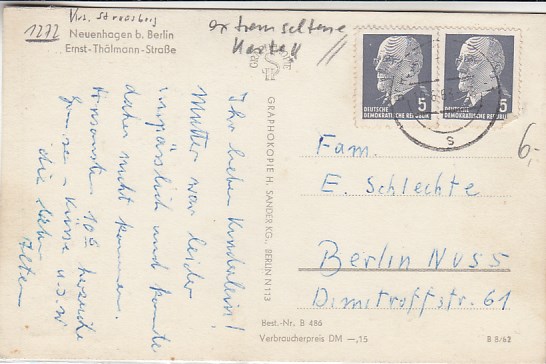 1272
Krs. Strausberg
Neuenhagen b. Berlin
Ernst-Thälmann-Straße
extrem seltene
Karte!!
Ihr lieben Kinderlein!
Mutter war leider
unpässlich und konnte
daher nicht kommen.
10
Grüsse + Küsse u.s.w
die alten
GRAPHOKOPIE H. SANDER KG., BERLIN N 113
5
DEUTSCHE
DEMOKRATISCHE REPUBLIK
5
DEUTSCHE
DEMOKRATISCHE REPUBLIK
s
6,-
Fam.
E. Schlechte
Berlin NW55
Dimitroffstr. 61
Best.-Nr. B 486
Verbraucherpreis DM —,15
B 8/62